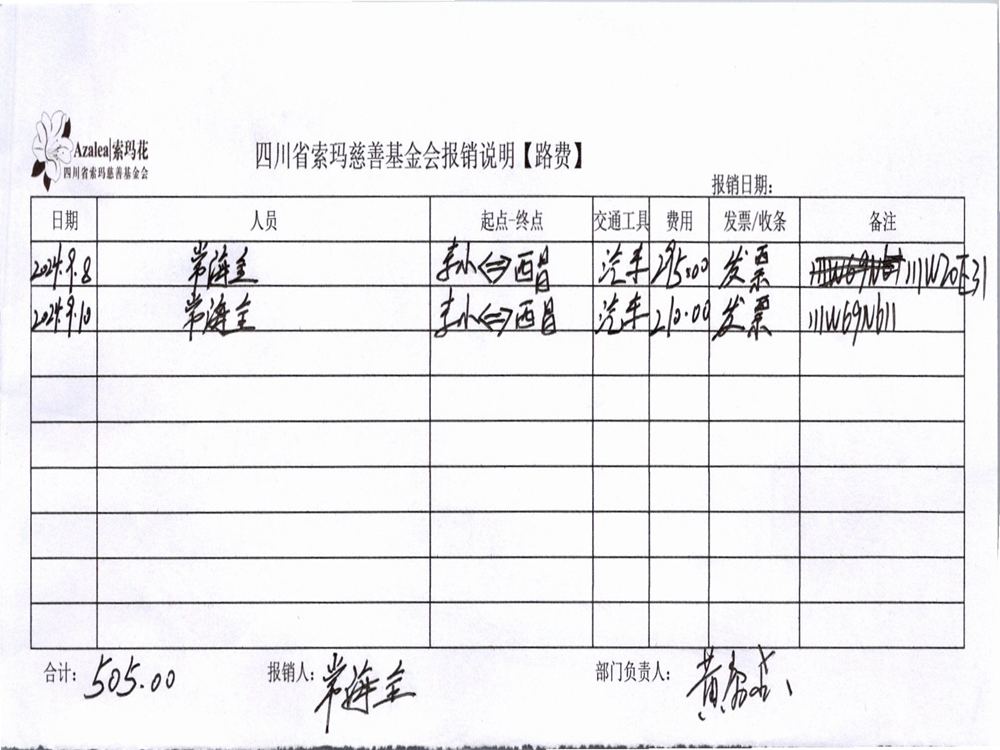 Azalea|索玛花
四川省索玛慈善基金会
四川省索玛慈善基金会报销说明【路费】
报销日期：
日期 人员 起点-终点 交通工具 费用 发票/收条 备注
2024.9.8 常海全 小⇔西昌 汽车 295.00 发票 川W20E31
2024.9.10 常海全 小⇔西昌 汽车 210.00 发票 川W69N611
合计： 505.00 报销人： 常海全 部门负责人： 黄